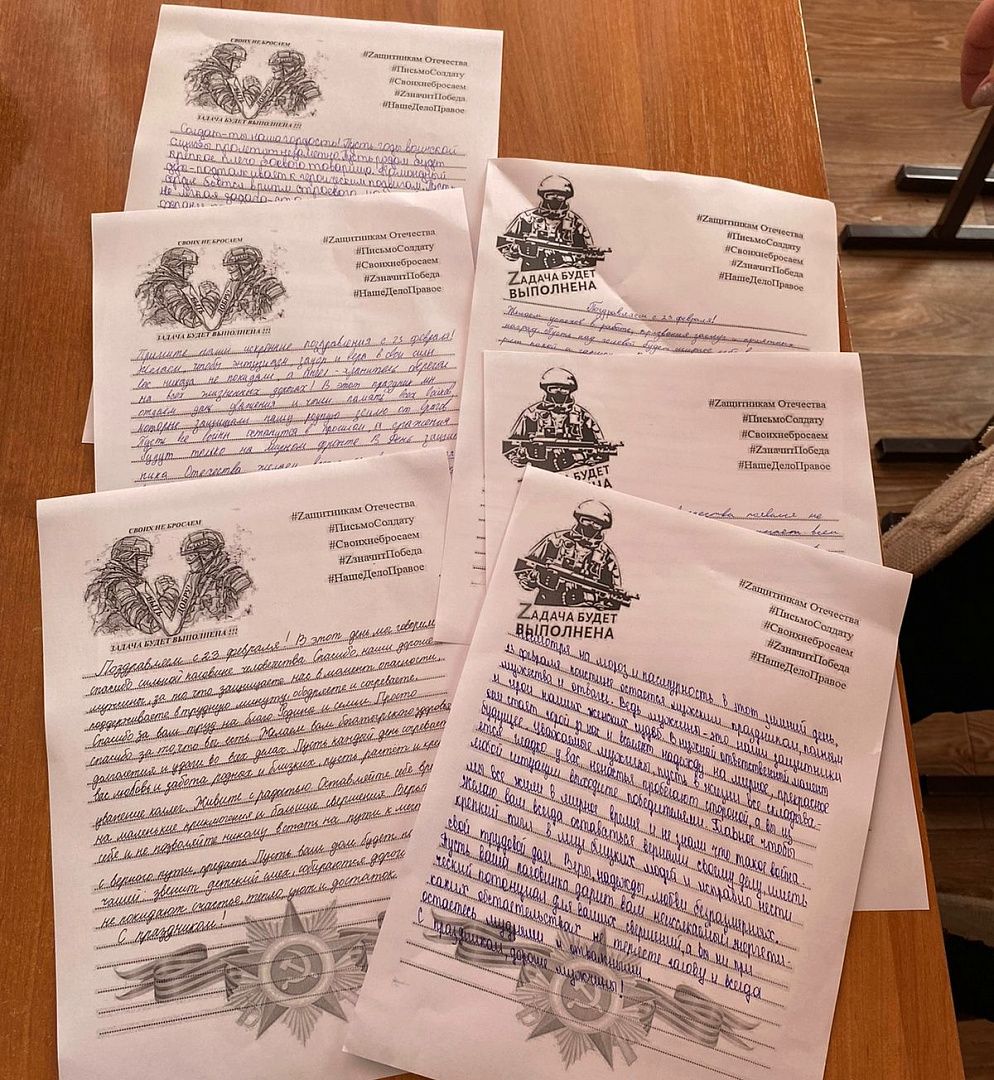 СВОИХ НЕ БРОСАЕМ
ЗАДАЧА БУДЕТ ВЫПОЛНЕНА !!!
#Zащитникам Отечества
#ПисьмоСолдату
#Своихнебросаем
#ZзначитПобеда
#НашеДелоПравое
Солдат-ты наша гордость! Пусть годы воинской
службы пролетят незаметно. Пусть рядом будет
крепкое плечо боевого товарища. Командный
дух-подталкивает к героическим подвигам. Пусть
СВОИХ НЕ БРОСАЕМ
ЗАДАЧА БУДЕТ ВЫПОЛНЕНА !!!
#Zащитникам Отечества
#ПисьмоСолдату
#Своихнебросаем
#ZзначитПобеда
#НашеДелоПравое
Примите наши искренние поздравления с 23 февраля!
Желаем, чтобы энтузиазм, задор и вера в свои силы
вас никогда не покидали, а Ангел-хранитель оберегал
на всех жизненных дорогах! В этот праздник мы
отдаем дань уважения и чтим память всех воинов,
которые защищали нашу родную землю от врагов.
Пусть все войны останутся в прошлом, а сражения
будут только на мирном фронте. В день защит-
ника Отечества желаем
СВОИХ НЕ БРОСАЕМ
ЗАДАЧА БУДЕТ ВЫПОЛНЕНА !!!
#Zащитникам Отечества
#ПисьмоСолдату
#Своихнебросаем
#ZзначитПобеда
#НашеДелоПравое
Поздравляем с 23 февраля! В этот день мы говорим
спасибо сильной половине человечества. Спасибо наши дорогие
мужчины, за то что защищаете нас в момент опасности,
поддерживаете в трудную минуту, ободряете и согреваете.
Спасибо за ваш труд на благо Родины и семьи. Просто
спасибо за то, что вы есть. Желаем вам богатырского здоровья,
долголетия и удачи во всех делах. Пусть каждый день согревает
вас любовь и забота родных и близких, пусть растет и
уважение коллег. Живите с радостью. Оставляйте себе
на маленькие приключения и большие свершения. Верьте
себе и не позволяйте никому встать на пути к
с верного пути предать. Пусть ваш дом будет
чашей: звенит детский смех, собираются дорогие
не покидают счастье, тепло, уют и достаток.
С праздником!
ZАДАЧА БУДЕТ
ВЫПОЛНЕНА
#Zащитникам Отечества
#ПисьмоСолдату
#Своихнебросаем
#ZзначитПобеда
#НашеДелоПравое
Поздравляем с 23 февраля!
Желаем успехов в работе, признания заслуг и приятных
наград. Пусть над головой будет мирное небо, а
ZАДАЧА БУДЕТ
#Zащитникам Отечества
#ПисьмоСолдату
#Своихнебросаем
#ZзначитПобеда
#НашеДелоПравое
ZАДАЧА БУДЕТ
ВЫПОЛНЕНА
#Zащитникам Отечества
#ПисьмоСолдату
#Своихнебросаем
#ZзначитПобеда
#НашеДелоПравое
Несмотря на мороз и пасмурность в этот зимний день,
23 февраля поистине остается мужским праздником, полным
мужества и отваги. Ведь мужчины-это наши защитники
и герои наших женских судеб. В нужный ответственный момент
они стоят горой за нас и вселяют надежду на мирное, прекрасное
будущее. Уважаемые мужчины, пусть в жизни все складыва-
ется гладко у вас, ненастья пробегают стороной, а вы из
любой ситуации выходите победителями. Главное, чтобы
мы все жили в мирное время и не знали что такое война.
Желаю вам всегда оставаться верными своему делу, иметь
крепкий тыл в лице близких людей и исправно нести
свой трудовой долг. Веры, надежды, любви безразмерных.
Пусть ваша половинка дарит вам неиссякаемый энергети-
ческий потенциал для ваших свершений, а вы ни при
каких обстоятельствах не теряете голову и всегда
остаетесь мудрыми и отважными.
С праздником, дорогие мужчины!